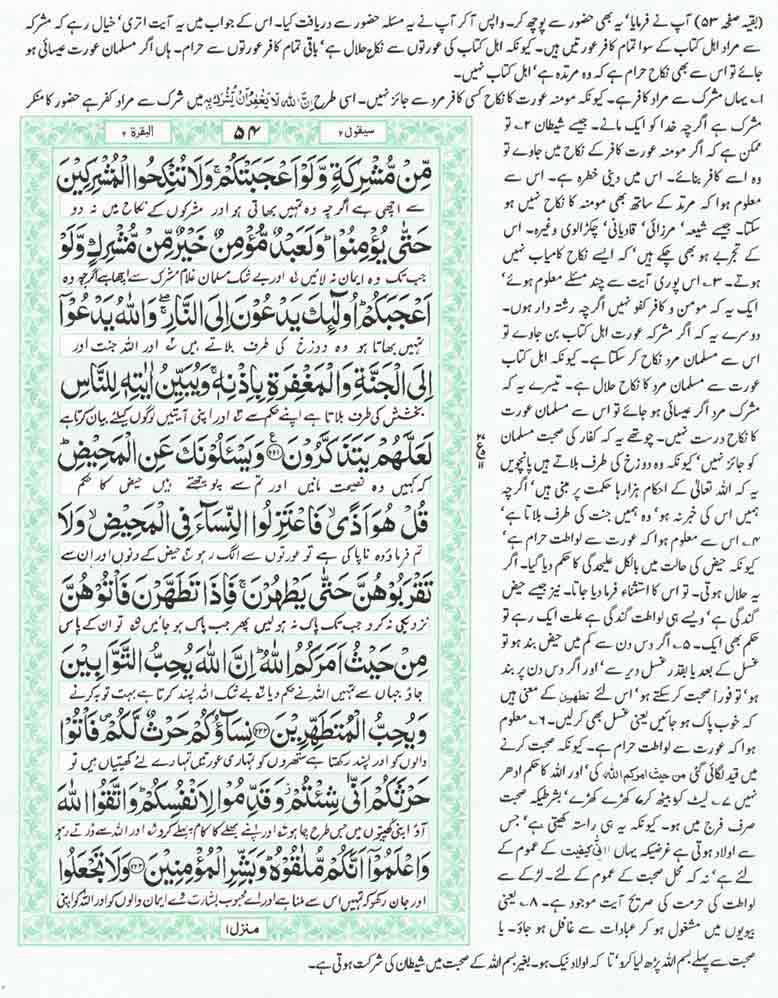 (بقیہ صفحہ ۵۳) آپ نے فرمایا' یہ بھی حضور سے پوچھ کر۔ واپس آ کر آپ نے یہ مسئلہ حضور سے دریافت کیا۔ اس کے جواب میں یہ آیت اتری' خیال رہے کہ مشرکہ
سے مراد اہل کتاب کے سوا تمام کافر عورتیں ہیں۔ کیونکہ اہل کتاب کی عورتوں سے نکاح حلال ہے' باقی تمام کافر عورتوں سے حرام۔ ہاں اگر مسلمان عورت عیسائی ہو
جائے تو اس سے بھی نکاح حرام ہے کہ وہ مرتدہ ہے' اہل کتاب نہیں۔
۱۔ یہاں مشرک سے مراد کافر ہے۔ کیونکہ مومنہ عورت کا نکاح کسی کافر مرد سے جائز نہیں۔ اسی طرح اِنَّ اللہَ لَا یَغْفِرُ اَنْ یُّشْرَکَ بِہٖ میں شرک سے مراد کفر ہے حضور کا منکر
مشرک ہے اگرچہ خدا کو ایک مانے۔ جیسے شیطان ۲۔ تو
ممکن ہے کہ اگر مومنہ عورت کافر کے نکاح میں جاوے تو
وہ اسے کافر بنائے۔ اس میں دینی خطرہ ہے۔ اس سے
معلوم ہوا کہ مرتد کے ساتھ بھی مومنہ کا نکاح نہیں ہو
سکتا۔ جیسے شیعہ' مرزائی' قادیانی' چکڑالوی وغیرہ۔ اس
کے تجربے ہو بھی چکے ہیں' کہ ایسے نکاح کامیاب نہیں
ہوتے۔ ۳۔ اس پوری آیت سے چند مسئلے معلوم ہوئے'
ایک یہ کہ مومن و کافر کفو نہیں اگرچہ رشتہ دار ہوں۔
دوسرے یہ کہ اگر مشرکہ عورت اہل کتاب بن جاوے تو
اس سے مسلمان مرد نکاح کر سکتا ہے۔ کیونکہ اہل کتاب
عورت سے مسلمان مرد کا نکاح حلال ہے۔ تیسرے یہ کہ
مشرک مرد اگر عیسائی ہو جائے تو اس سے مسلمان عورت
کا نکاح درست نہیں۔ چوتھے یہ کہ کفار کی صحبت مسلمان
کو جائز نہیں' کیونکہ وہ دوزخ کی طرف بلاتے ہیں پانچویں
یہ کہ اللہ تعالٰی کے احکام ہزارہا حکمت پر مبنی ہیں' اگرچہ
ہمیں اس کی خبر نہ ہو' وہ ہمیں جنت کی طرف بلاتا ہے'
۴۔ اس سے معلوم ہوا کہ عورت سے لواطت حرام ہے'
کیونکہ حیض کی حالت میں بالکل علیحدگی کا حکم دیا گیا۔ اگر
یہ حلال ہوتی۔ تو اس کا استثناء فرما دیا جاتا۔ نیز جیسے حیض
گندگی ہے' ویسے ہی لواطت گندگی ہے علت ایک رہے تو
حکم بھی ایک۔ ۵۔ اگر دس دن سے کم میں حیض بند ہو تو
غسل کے بعد یا بقدر غسل دیر سے' اور اگر دس دن پر بند
ہو' تو فوراً صحبت کر سکتے ہو' اس لئے تَطَهَّرْنَ کے معنی ہیں
کہ خوب پاک ہو جائیں یعنی غسل بھی کر لیں۔ ۶۔ معلوم
ہوا کہ عورت سے لواطت حرام ہے۔ کیونکہ صحبت کرنے
میں قید لگائی گئی مِنْ حَيْثُ اَمَرَكُمُ اللہُ کی' اور اللہ کا حکم ادھر
نہیں ۷۔ لیٹ کر بیٹھ کر کھڑے کھڑے' بشرطیکہ صحبت
صرف فرج میں ہو۔ کیونکہ یہ ہی راستہ کھیتی ہے' جس
سے اولاد ہوتی ہے غرضیکہ یہاں اَنّٰی کیفیت کے عموم کے
لئے ہے' نہ کہ محل صحبت کے عموم کے لئے۔ لڑکے سے
لواطت کی حرمت کی صریح آیت موجود ہے۔ ۸۔ یعنی
بیویوں میں مشغول ہو کر عبادات سے غافل نہ ہو جاؤ۔ یا
صحبت سے پہلے بسم اللہ پڑھ لیا کرو' تا کہ اولاد نیک ہو۔ بغیر بسم اللہ کے صحبت میں شیطان کی شرکت ہوتی ہے۔
سیقول ۲ ۵۴ البقرة ۲
مِّنْ مُّشْرِكَةٍ وَّلَوْ اَعْجَبَتْكُمْ ۚ وَلَا تُنْكِحُوا الْمُشْرِكِيْنَ
سے اچھی ہے اگرچہ وہ تمہیں بھاتی ہو اور مشرکوں کے نکاح میں نہ دو
حَتّٰى يُؤْمِنُوْا ؕ وَلَعَبْدٌ مُّؤْمِنٌ خَيْرٌ مِّنْ مُّشْرِكٍ وَّلَوْ
جب تک وہ ایمان نہ لائیں اور بے شک مسلمان غلام مشرک سے اچھا ہے اگرچہ وہ
اَعْجَبَكُمْ ؕ اُولٰٓئِكَ يَدْعُوْنَ اِلَى النَّارِ ۖۚ وَاللّٰهُ يَدْعُوْٓا
تمہیں بھاتا ہو وہ دوزخ کی طرف بلاتے ہیں اور اللہ جنت اور
اِلَى الْجَنَّةِ وَالْمَغْفِرَةِ بِاِذْنِهٖ ۚ وَيُبَيِّنُ اٰيٰتِهٖ لِلنَّاسِ
بخشش کی طرف بلاتا ہے اپنے حکم سے اور اپنی آیتیں لوگوں کیلئے بیان کرتا ہے
لَعَلَّهُمْ يَتَذَكَّرُوْنَ ﴿۲۲۱﴾ وَيَسْـَٔلُوْنَكَ عَنِ الْمَحِيْضِ ؕ
کہ کہیں وہ نصیحت مانیں اور تم سے پوچھتے ہیں حیض کا حکم
قُلْ هُوَ اَذًى ۙ فَاعْتَزِلُوا النِّسَآءَ فِى الْمَحِيْضِ ۙ وَلَا
تم فرماؤ وہ ناپاکی ہے تو عورتوں سے الگ رہو حیض کے دنوں اور ان سے
تَقْرَبُوْهُنَّ حَتّٰى يَطْهُرْنَ ۚ فَاِذَا تَطَهَّرْنَ فَاْتُوْهُنَّ
نزدیکی نہ کرو جب تک پاک نہ ہو لیں پھر جب پاک ہو جائیں تو ان کے پاس
مِنْ حَيْثُ اَمَرَكُمُ اللّٰهُ ؕ اِنَّ اللّٰهَ يُحِبُّ التَّوَّابِيْنَ
جاؤ جہاں سے تمہیں اللہ نے حکم دیا بے شک اللہ پسند کرتا ہے بہت توبہ کرنے
وَيُحِبُّ الْمُتَطَهِّرِيْنَ ﴿۲۲۲﴾ نِسَآؤُكُمْ حَرْثٌ لَّكُمْ ۪ فَاْتُوْا
والوں کو اور پسند رکھتا ہے ستھروں کو تمہاری عورتیں تمہارے لئے کھیتیاں ہیں تو
حَرْثَكُمْ اَنّٰى شِئْتُمْ ۫ وَقَدِّمُوْا لِاَنْفُسِكُمْ ؕ وَاتَّقُوا اللّٰهَ
آؤ اپنی کھیتیوں میں جس طرح چاہو اور اپنے بھلے کا کام پہلے کرو اور اللہ سے ڈرتے رہو
وَاعْلَمُوْٓا اَنَّكُمْ مُّلٰقُوْهُ ؕ وَبَشِّرِ الْمُؤْمِنِيْنَ ﴿۲۲۳﴾ وَلَا تَجْعَلُوا
اور جان رکھو کہ تمہیں اس سے ملنا ہے اور اے محبوب بشارت دو ایمان والوں کو اور اللہ کو اپنی
منزل ۱